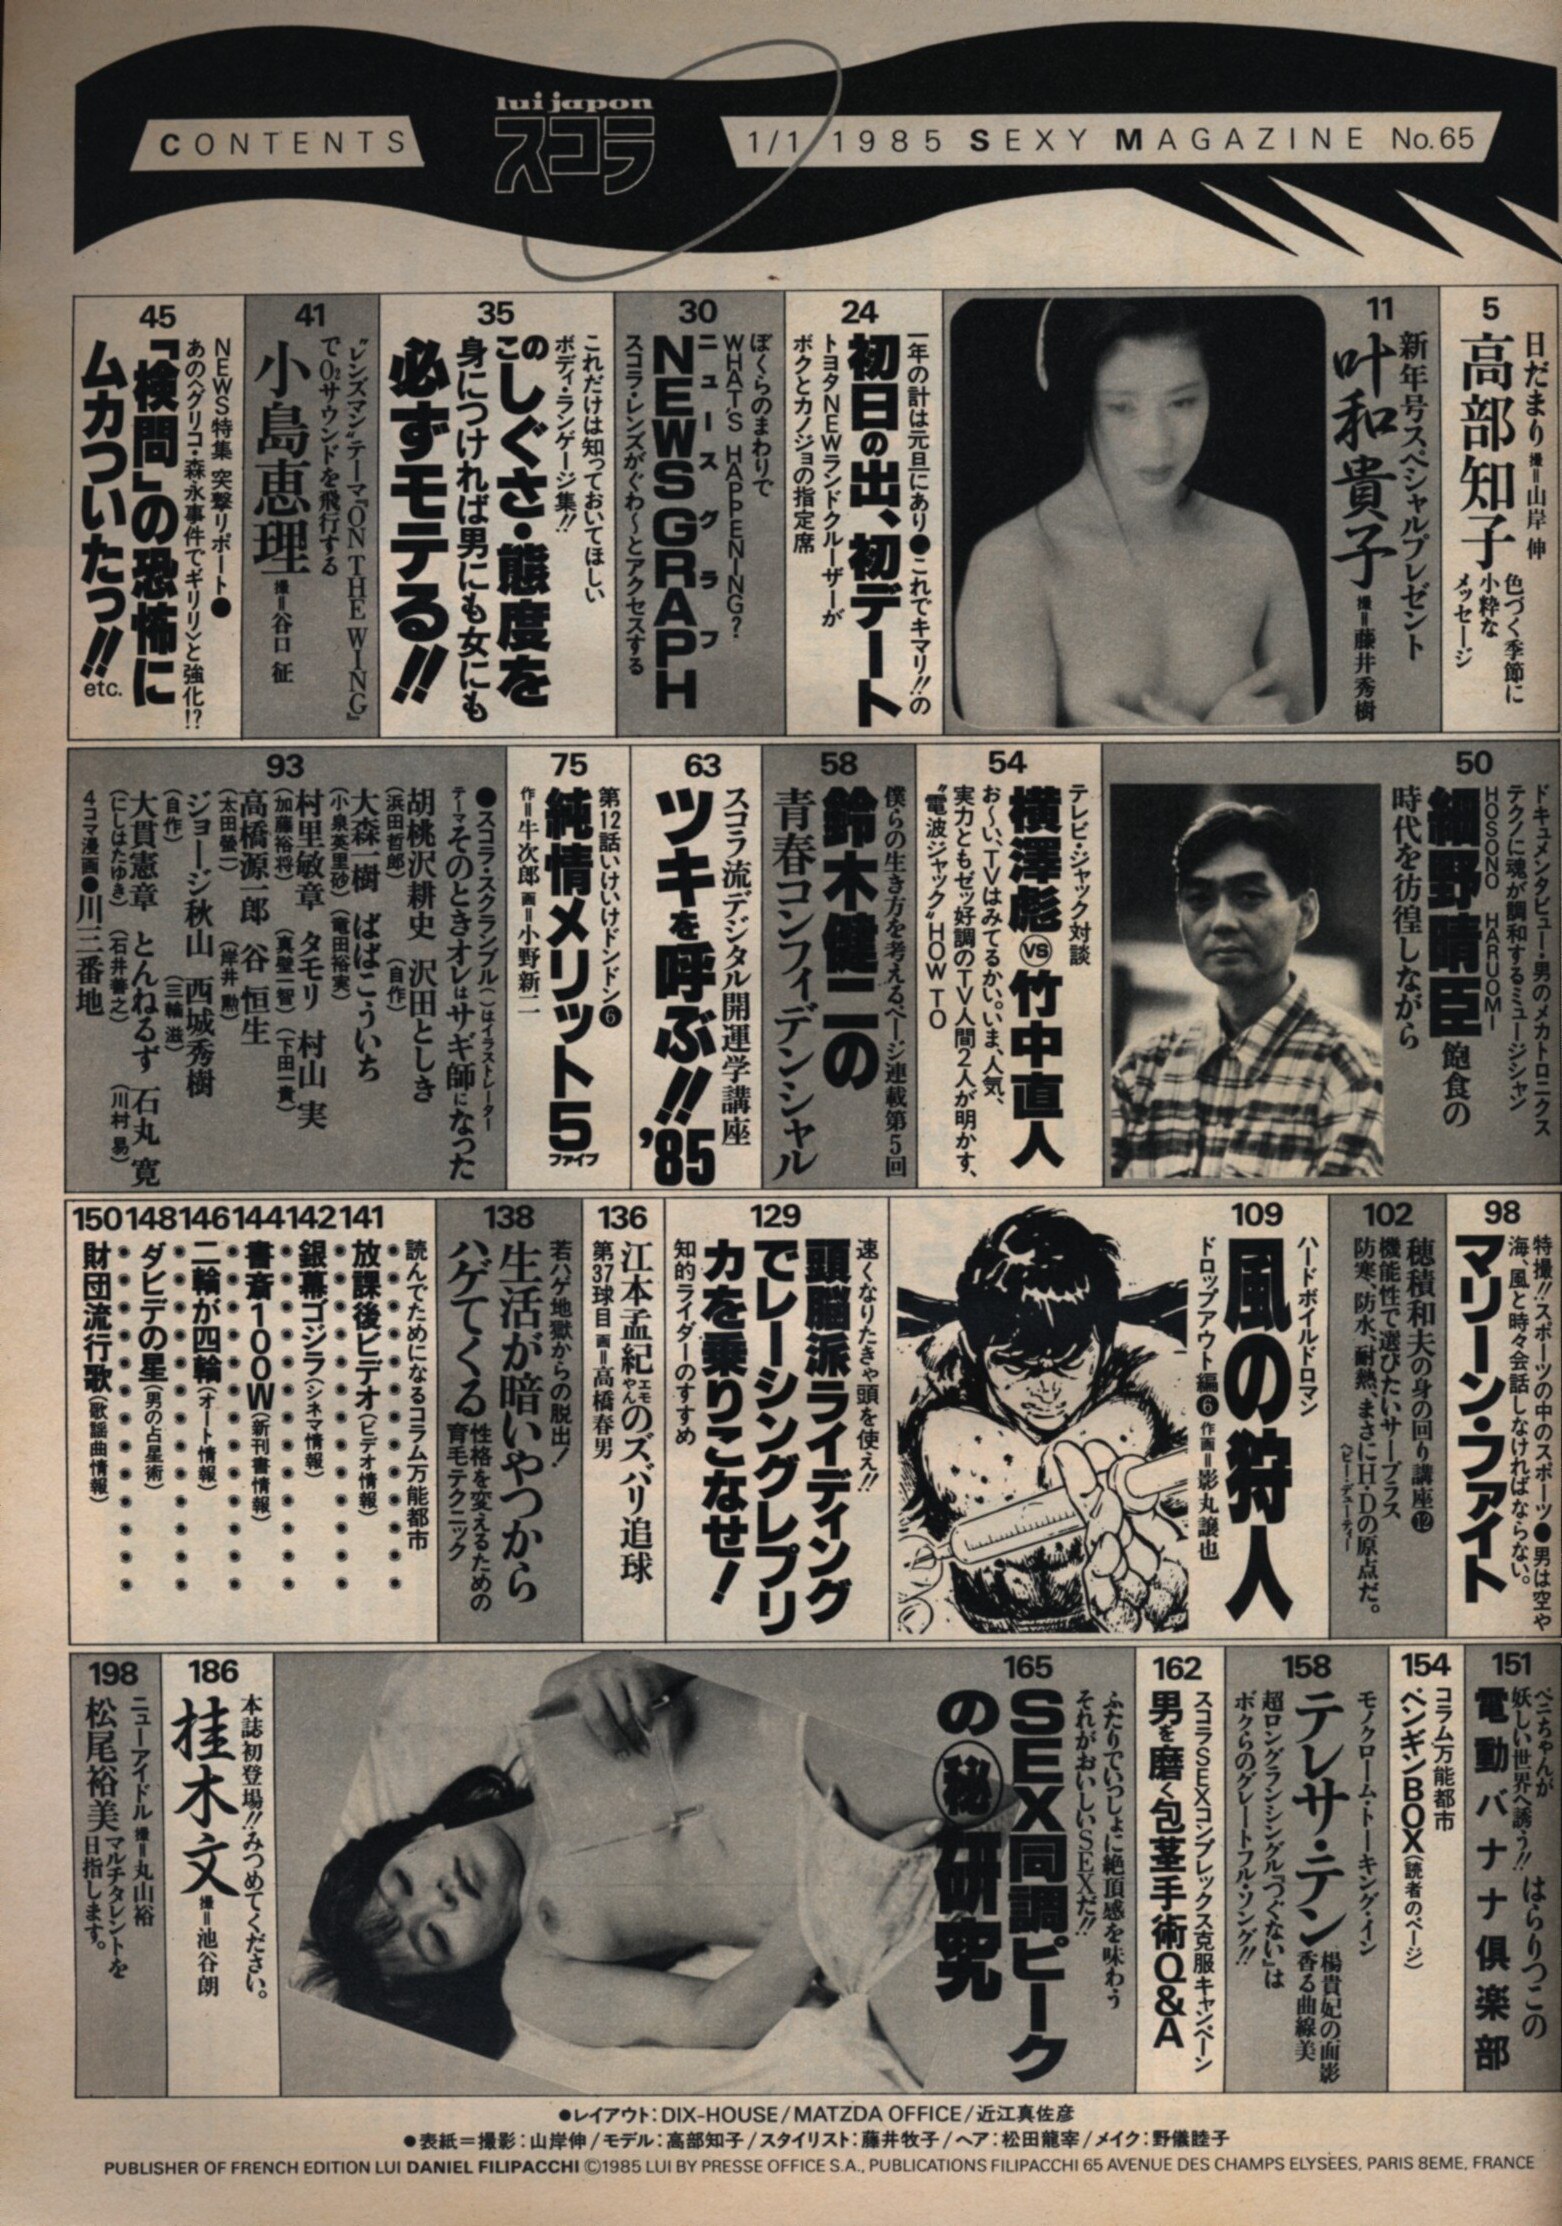 CONTENTS
lui japon
スコラ
1/1 1985 SEXY MAGAZINE No.65
5
日だまり 撮=山岸 伸
高部知子
色づく季節に
小粋な
メッセージ
11
新年号スペシャルプレゼント
叶和貴子 撮=藤井秀樹
24
一年の計は元旦にあり●これでキマリ!!の
初日の出、初デート
トヨタNEWランドクルーザーが
ボクとカノジョの指定席
30
ぼくらのまわりで
WHAT'S HAPPENING?
ニュースグラフ
NEWS GRAPH
スコラ・レンズがぐわ〜とアクセスする
35
これだけは知っておいてほしい
ボディ・ランゲージ集!!
このしぐさ・態度を
身につければ男にも女にも
必ずモテる!!
41
"レンズマン"テーマ『ON THE WING』
でO2サウンドを飛行する
小島恵理 撮=谷口 征
45
NEWS特集 突撃リポート●
あの〈グリコ・森永事件でギリリ〉と強化!?
「検問」の恐怖に
ムカついたっ!! etc.
50
ドキュメンタビュー・男のメカトロニクス
テクノに魂が調和するミュージシャン
HOSONO HARUOMI
細野晴臣 飽食の
時代を彷徨しながら
54
テレビ・ジャック対談
横澤彪VS竹中直人
お〜い、TVはみてるかい。いま、人気、
実力ともゼッ好調のTV人間2人が明かす、
"電波ジャック"HOW TO
58
僕らの生き方を考えるページ連載第5回
鈴木健二の
青春コンフィデンシャル
63
スコラ流デジタル開運学講座
ツキを呼ぶ!!'85
75
第12話いけいけドンドン❻
純情メリット5
ファイブ
作=牛次郎 画=小野新二
93
●スコラ・スクランブル( )はイラストレーター
テーマそのときオレはサギ師になった
胡桃沢耕史 沢田としき
(浜田哲郎) (自作)
大森一樹 ばばこういち
(小泉英里砂) (竜田裕実)
村里敏章 タモリ 村山 実
(加藤裕将) (真壁一智) (下田一貴)
高橋源一郎 谷 恒生
(太田螢一) (岸井 勲)
ジョージ秋山 西城秀樹
(自作) (三輪 滋)
大貫憲章 とんねるず 石丸 寛
(にしはたゆき) (石井善之) (川村 易)
4コマ漫画●川三番地
98
特撮!!スポーツの中のスポーツ●男は空や
海、風と時々会話しなければならない。
マリーン・ファイト
102
穂積和夫の身の回り講座⓬
機能性で選びたいサープラス
防寒、防水、耐熱、まさにH・Dの原点だ。
ヘビー・デューティー
109
ハードボイルドロマン
風の狩人
ドロップアウト編❻ 作画=影丸譲也
129
速くなりたきゃ頭を使え!!
頭脳派ライディング
でレーシングレプリ
カを乗りこなせ!
知的ライダーのすすめ
136
江本孟紀のズバリ追球
エモやん
第37球目 画=高橋春男
138
若ハゲ地獄からの脱出!
生活が暗いやつから
ハゲてくる 性格を変えるための
育毛テクニック
読んでためになるコラム万能都市
141
放課後ビデオ(ビデオ情報)
142
銀幕ゴジラ(シネマ情報)
144
書斎100W(新刊書情報)
146
二輪が四輪(オート情報)
148
ダビデの星(男の占星術)
150
財団流行歌(歌謡曲情報)
151
ベニちゃんが
妖しい世界へ誘う!! はらりつこの
電動バナナ倶楽部
154
コラム万能都市
ペンギンBOX(読者のページ)
158
モノクローム・トーキング・イン
テレサ・テン 楊貴妃の面影
香る曲線美
超ロングラン・シングル『つぐない』は
ボクらのグレートフル・ソング!!
162
スコラSEXコンプレックス克服キャンペーン
男を磨く包茎手術Q&A
165
ふたりでいっしょに絶頂感を味わう
それがおいしいSEXだ!!
SEX同調ピーク
の㊙研究
186
本誌初登場!!みつめてください。
桂木文 撮=池谷朗
198
ニューアイドル 撮=丸山裕
松尾裕美 マルチタレントを
目指します。
●レイアウト:DIX-HOUSE/MATZDA OFFICE/近江真佐彦
●表紙=撮影:山岸伸/モデル:高部知子/スタイリスト:藤井牧子/ヘア:松田龍宰/メイク:野儀睦子
PUBLISHER OF FRENCH EDITION LUI DANIEL FILIPACCHI ©1985 LUI BY PRESSE OFFICE S.A., PUBLICATIONS FILIPACCHI 65 AVENUE DES CHAMPS ELYSEES, PARIS 8EME, FRANCE